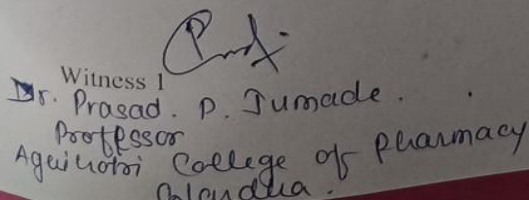 Witness 1
Dr. Prasad. P. Jumade.
Professor
Agnihotri College of Pharmacy